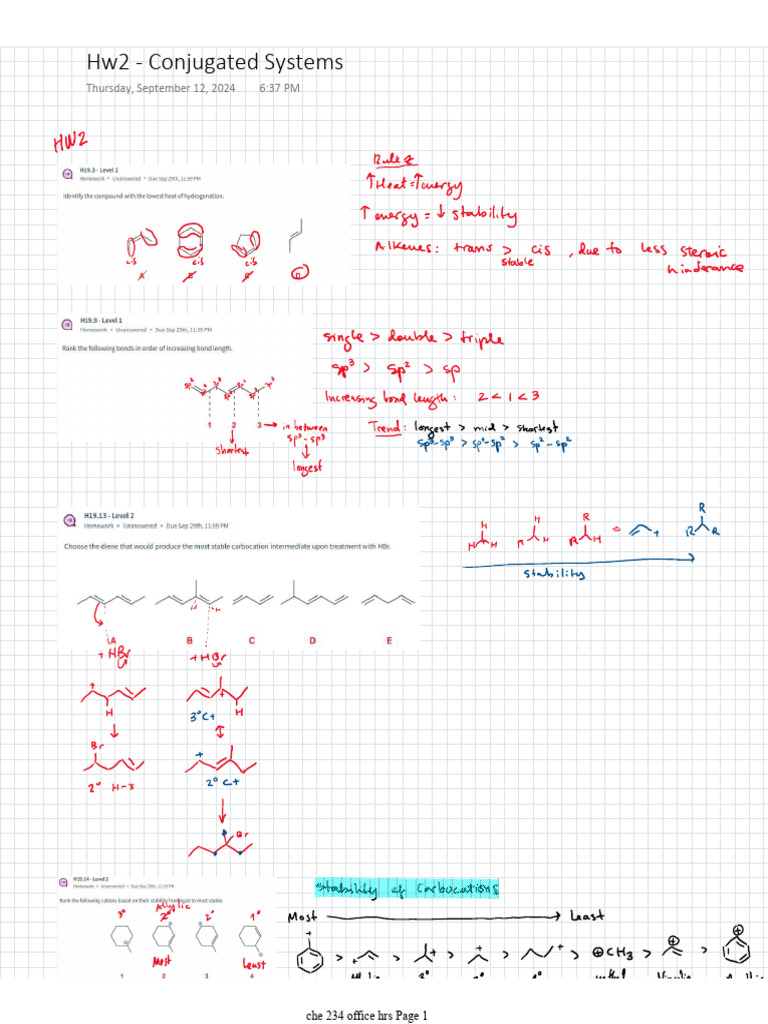 Hw2 - Conjugated Systems
Thursday, September 12, 2024 6:37 PM
HW2
H19.3 - Level 2
Homework • Unanswered • Due Sep 29th, 11:59 PM
Identify the compound with the lowest heat of hydrogenation.
cis cis cis
A B C D
Rules
↑Heat=↑energy
↑energy = ↓ stability
Alkenes: trans > cis , due to less steroic
stable
hinderance
H19.9 - Level 1
Homework • Unanswered • Due Sep 29th, 11:59 PM
Rank the following bonds in order of increasing bond length.
sp² sp² sp³ sp² sp² sp³ sp³
1 2 3 → in between
sp³-sp³
shortest
longest
single > double > triple
sp³ > sp² > sp
Increasing bond length: 2 < 1 < 3
Trend: longest > mid > shortest
sp³-sp³ > sp³-sp² > sp²-sp²
H19.13 - Level 2
Homework • Unanswered • Due Sep 29th, 11:59 PM
Choose the diene that would produce the most stable carbocation intermediate upon treatment with HBr.
H H R R
H + H R + H R + H = + R + R
stability
A B C D E
+ HBr + HBr
+ H + H
3° C+
Br +
2° H-X 2° C+
Br
H19.14 - Level 2
Homework • Unanswered • Due Sep 29th, 11:59 PM
Rank the following cations based on their stability from least to most stable.
Allylic
3° 2° 2° 1°
Most Least
1 2 3 4
Stability of Carbocations
Most → Least
+ > + > + > + > + > ⊕CH3 > ⊕ > ⊕
che 234 office hrs Page 1